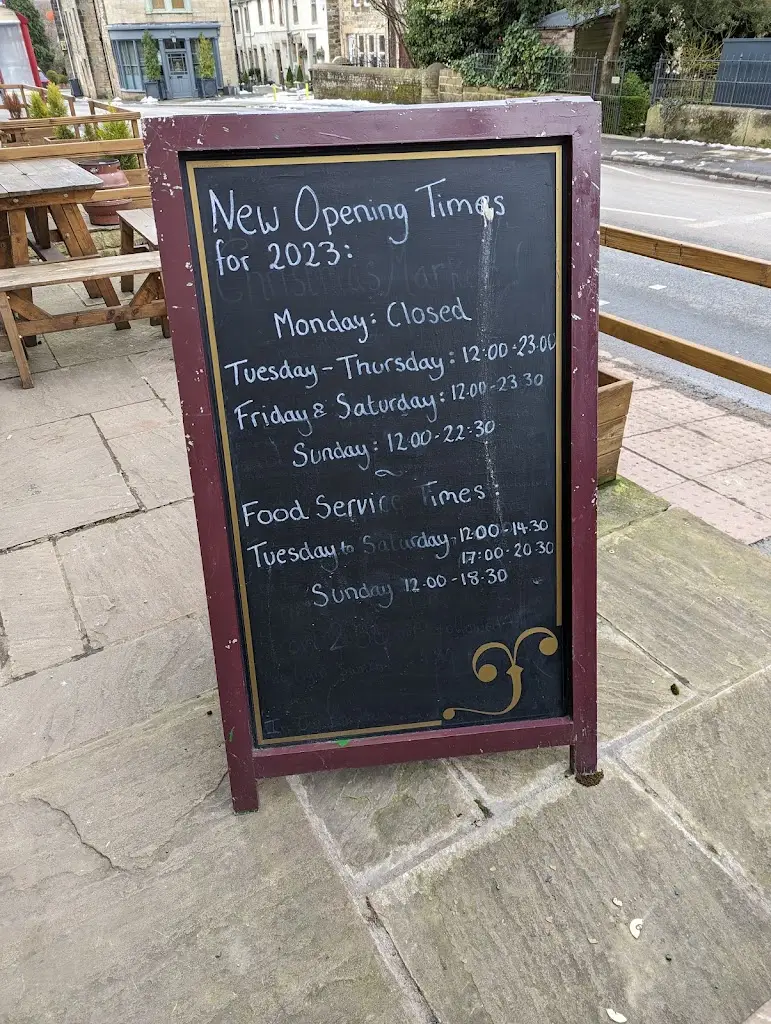 New Opening Times
for 2023:
Christmas Market!
Monday: Closed
Tuesday - Thursday: 12:00-23:00
Friday & Saturday: 12:00-23:30
Sunday: 12:00-22:30
Food Service Times:
Tuesday to Saturday - 12:00-14:30
17:00-20:30
Sunday 12:00-18:30